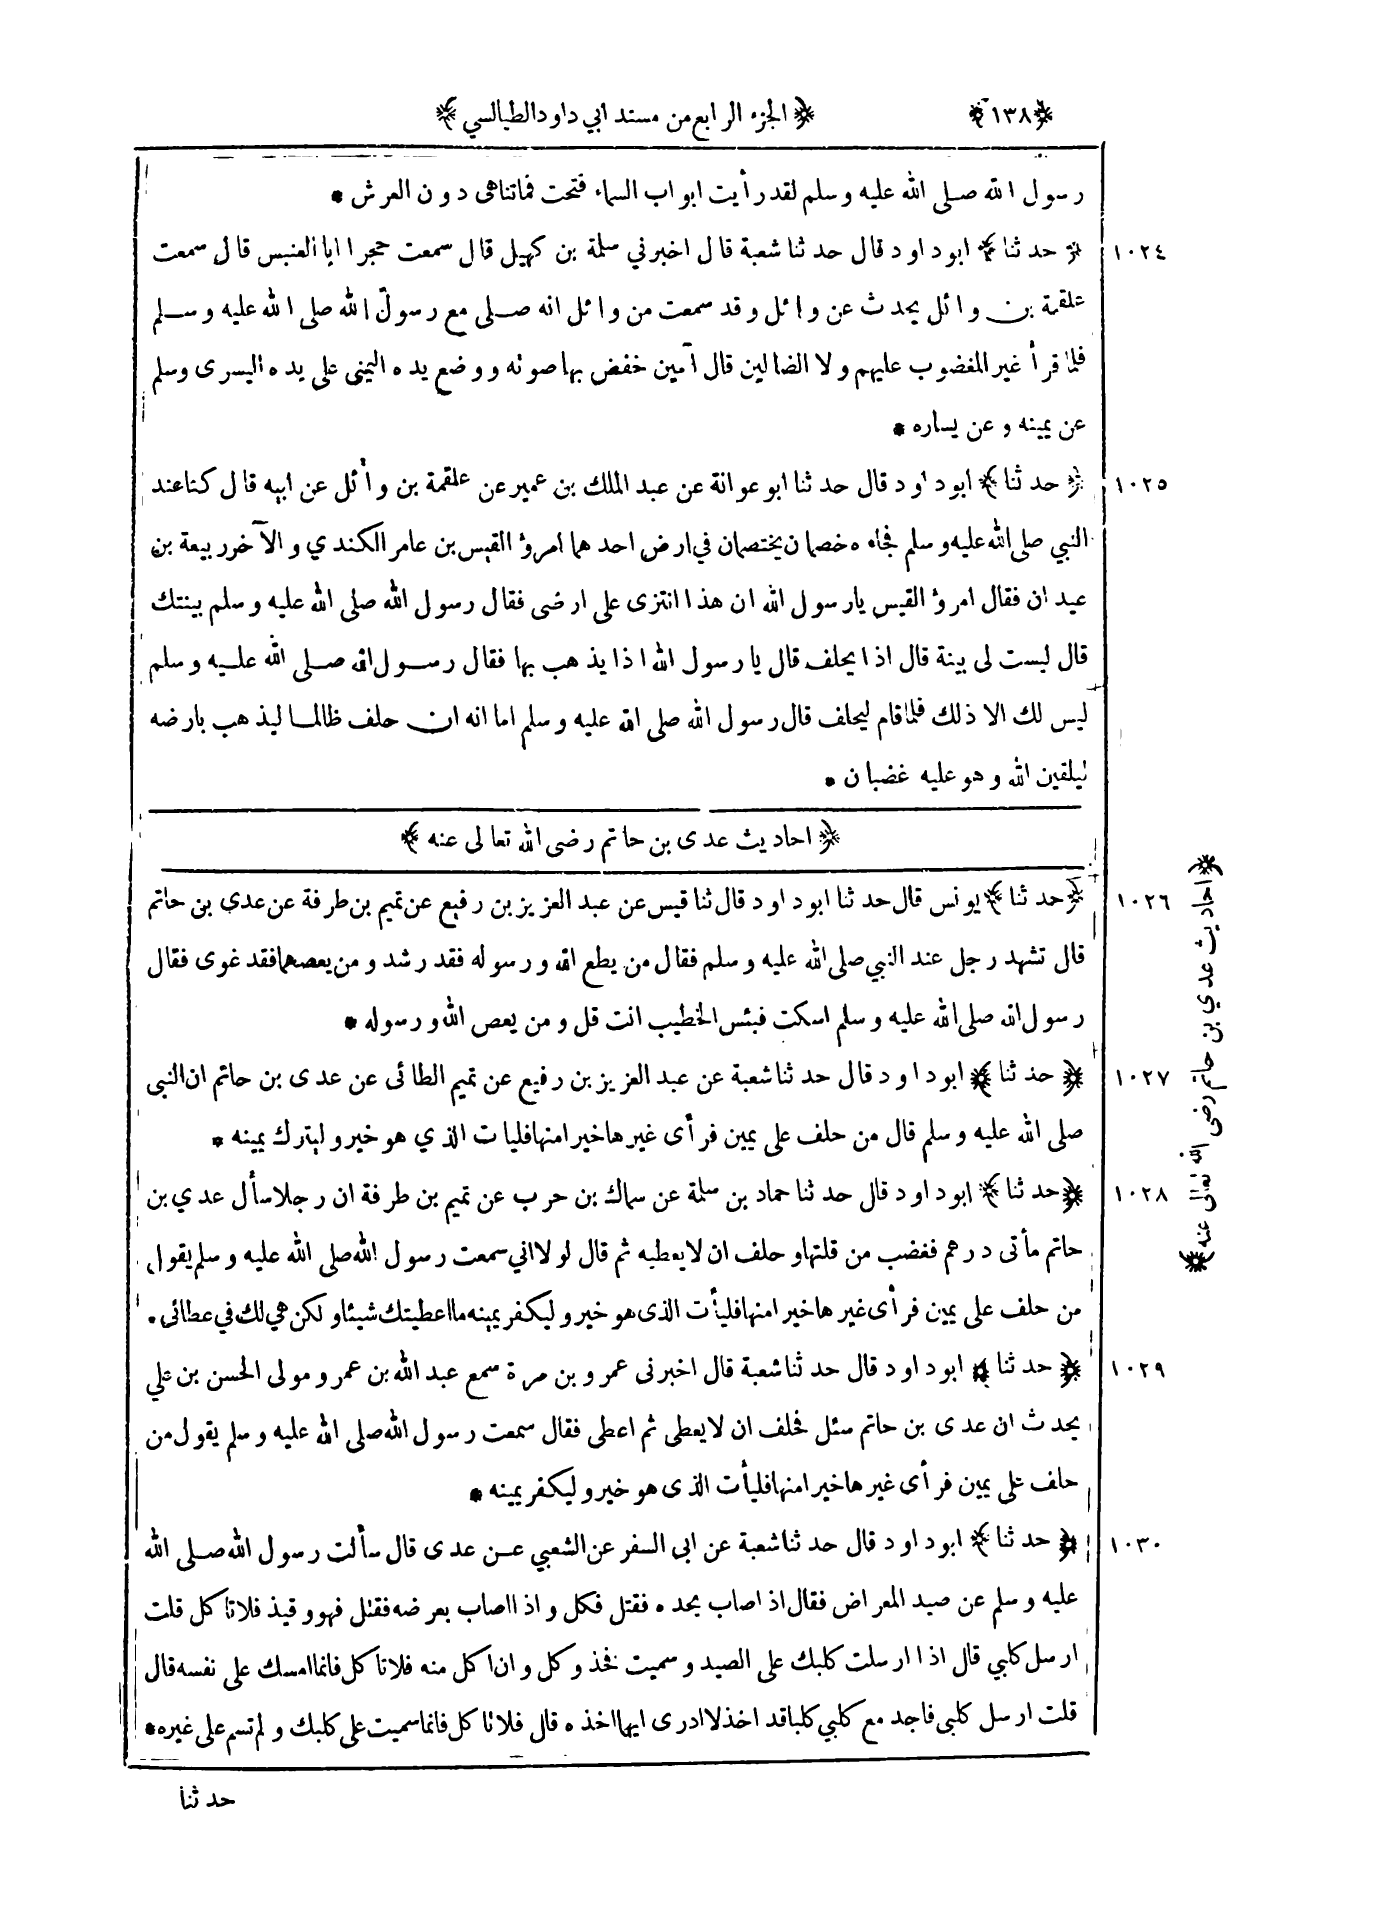 ﴿١٣٨﴾ ﴿الجزء الرابع من مسند ابي داود الطيالسي﴾
رسول الله صلى الله عليه وسلم لقد رأيت ابواب السماء فتحت فماتناهى دون العرش *
١٠٢٤ ﴿حدثنا﴾ ابوداود قال حدثنا شعبة قال اخبرني سلمة بن كهيل قال سمعت حجرا ابا العنبس قال سمعت
علقمة بن وائل يحدث عن وائل وقد سمعت من وائل انه صلى مع رسول الله صلى الله عليه وسلم
فلما قرأ غير المغضوب عليهم ولا الضالين قال آمين خفض بها صوته ووضع يده اليمنى على يده اليسرى وسلم
عن يمينه وعن يساره *
١٠٢٥ ﴿حدثنا﴾ ابوداود قال حدثنا ابوعوانة عن عبد الملك بن عمير عن علقمة بن وائل عن ابيه قال كنا عند
النبي صلى الله عليه وسلم فجاءه خصمان يختصمان في ارض احدهما امرؤ القيس بن عامر الكندي والآخر ربيعة بن
عبدان فقال امرؤ القيس يارسول الله ان هذا انتزى على ارضى فقال رسول الله صلى الله عليه وسلم بينتك
قال ليست لى بينة قال اذا يحلف قال يا رسول الله اذا يذهب بها فقال رسول الله صلى الله عليه وسلم
ليس لك الا ذلك فلما قام ليحلف قال رسول الله صلى الله عليه وسلم اما انه ان حلف ظالما ليذهب بارضه
ليلقين الله وهو عليه غضبان *
﴿احاديث عدى بن حاتم رضى الله تعالى عنه﴾
﴿احاديث عدي بن حاتم رضى الله تعالى عنه﴾
١٠٢٦ ﴿حدثنا﴾ يونس قال حدثنا ابوداود قال ثنا قيس عن عبد العزيز بن رفيع عن تميم بن طرفة عن عدى بن حاتم
قال تشهد رجل عند النبي صلى الله عليه وسلم فقال من يطع الله ورسوله فقد رشد ومن يعصهما فقد غوى فقال
رسول الله صلى الله عليه وسلم اسكت فبئس الخطيب انت قل ومن يعص الله ورسوله *
١٠٢٧ ﴿حدثنا﴾ ابوداود قال حدثنا شعبة عن عبد العزيز بن رفيع عن تميم الطائى عن عدى بن حاتم ان النبى
صلى الله عليه وسلم قال من حلف على يمين فرأى غيرها خيرا منها فليات الذي هو خير وليترك يمينه *
١٠٢٨ ﴿حدثنا﴾ ابوداود قال حدثنا حماد بن سلمة عن سماك بن حرب عن تميم بن طرفة ان رجلا سأل عدي بن
حاتم مأتى درهم فغضب من قلتها وحلف ان لا يعطيه ثم قال لولا اني سمعت رسول الله صلى الله عليه وسلم يقول
من حلف على يمين فرأى غيرها خيرا منها فليأت الذى هو خير وليكفر يمينه ما اعطيتك شيئا ولكن هي لك في عطائى .
١٠٢٩ ﴿حدثنا﴾ ابوداود قال حدثنا شعبة قال اخبرنى عمرو بن مرة سمع عبد الله بن عمرو مولى الحسن بن علي
يحدث ان عدى بن حاتم سئل فحلف ان لا يعطى ثم اعطى فقال سمعت رسول الله صلى الله عليه وسلم يقول من
حلف على يمين فرأى غيرها خيرا منها فليأت الذى هو خير وليكفر يمينه *
١٠٣٠ ﴿حدثنا﴾ ابوداود قال حدثنا شعبة عن ابى السفر عن الشعبي عن عدى قال سألت رسول الله صلى الله
عليه وسلم عن صيد المعراض فقال اذ اصاب بحده فقتل فكل واذا اصاب بعرضه فقتل فهو وقيذ فلا تاكل قلت
ارسل كلبي قال اذا ارسلت كلبك على الصيد وسميت فخذ وكل وان اكل منه فلا تاكل فانما امسك على نفسه قال
قلت ارسل كلبى فاجد مع كلبي كلبا قد اخذ لا ادرى ايهما اخذه قال فلا تاكل فانما سميت على كلبك ولم تسم على غيره *
حدثنا